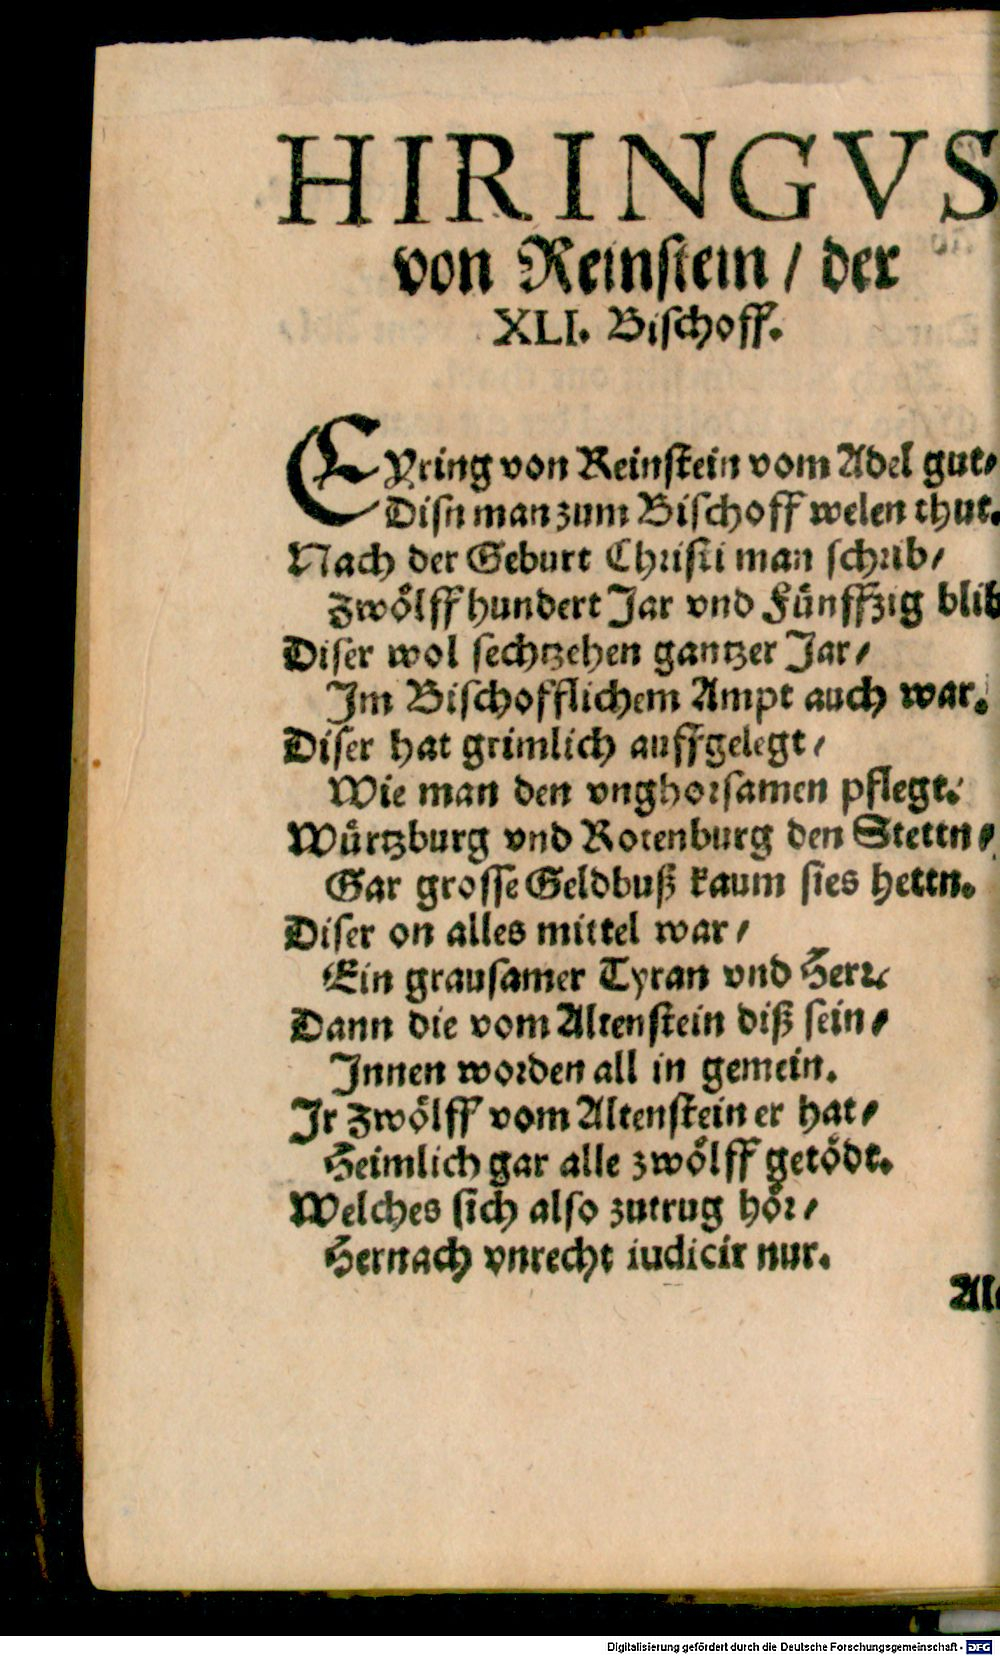 HIRINGVS
von Reinstein / der
XLI. Bischoff.
EYring von Reinstein vom Adel gut/
Disn man zum Bischoff welen thut.
Nach der Geburt Christi man schrib/
Zwölff hundert Jar vnd Fünffzig blib
Diser wol sechtzehen gantzer Jar/
Im Bischofflichem Ampt auch war.
Diser hat grimlich auffgelegt/
Wie man den vnghorsamen pflegt.
Würtzburg vnd Rotenburg den Stettn/
Gar grosse Geldbuß kaum sies hettn.
Diser on alles mittel war/
Ein grausamer Tyran vnd Herr
Dann die vom Altenstein diß sein/
Innen worden all in gemein.
Ir zwölff vom Altenstein er hat/
Heimlich gar alle zwölff getödt.
Welches sich also zutrug hör/
Hernach vnrecht iudicir nur.
Digitalisierung gefördert durch die Deutsche Forschungsgemeinschaft - DFG